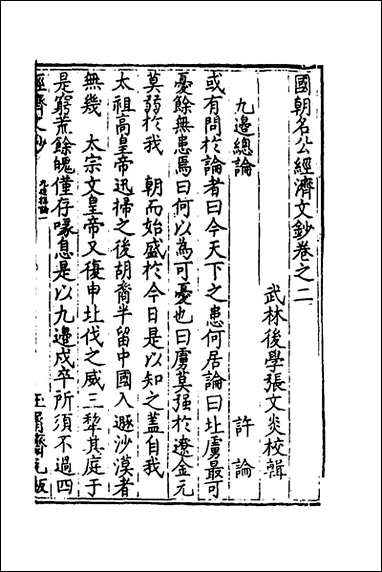 國朝名公經濟文鈔卷之二
武林後學張文炎校輯
九邊總論 許論
或有問於論者曰今天下之患何居論曰北虜最可
憂餘無患焉曰何以為可憂也曰虜莫强於遼金元
莫弱於我 朝而始盛於今日是以知之蓋自我
太祖高皇帝迅掃之後胡裔半留中國入遯沙漠者
無幾 太宗文皇帝又復申北伐之威三犂其庭于
是窮荒餘魄僅存喙息是以九邊戍卒所須不過四
經濟文鈔
九邊總論一